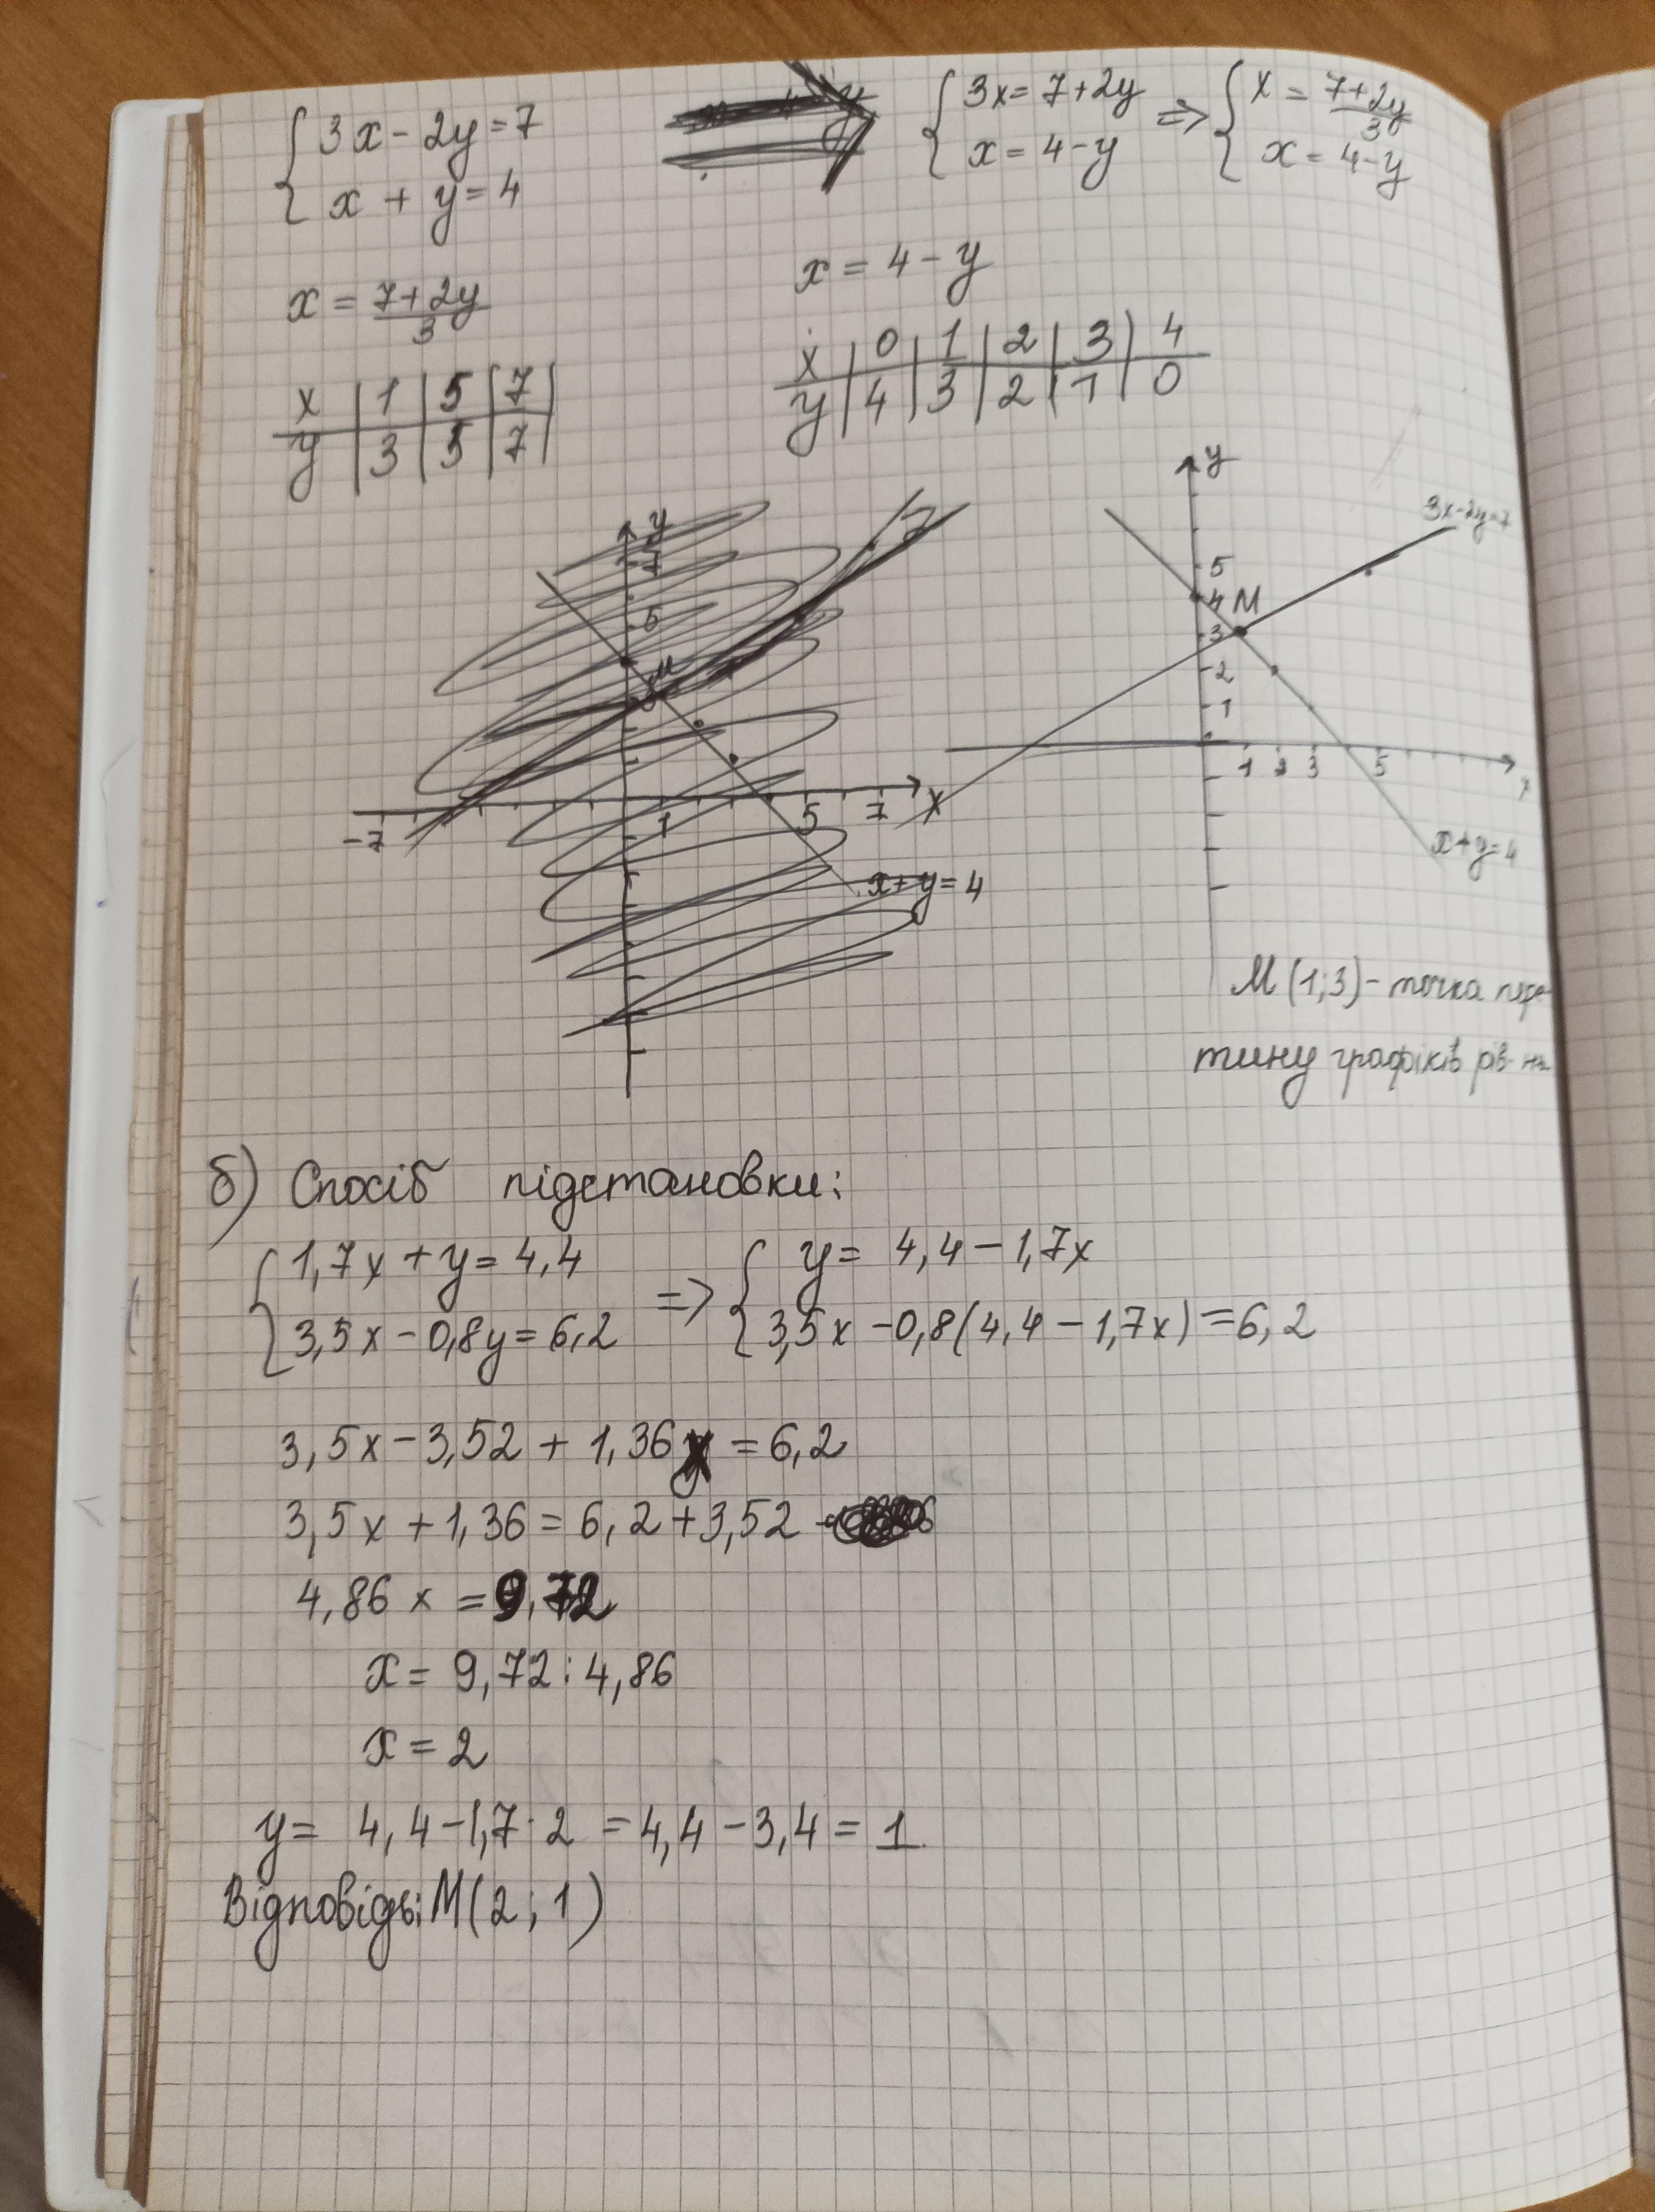 { 3x - 2y = 7
x + y = 4
{ 3x = 7 + 2y
x = 4 - y
=> { x = (7+2y)/3
x = 4 - y
x = (7+2y)/3
x | 1 | 5 | 7 |
y | 3 | 5 | 7 |
x = 4 - y
x | 0 | 1 | 2 | 3 | 4
y | 4 | 3 | 2 | 1 | 0
y
7
5
M
-7
1
5
7
x
x+y=4
y
3x-2y=7
5
4
M
3
2
1
1
2
3
5
x
x+y=4
M (1;3) - точка пере-
тину графіків рів-нь
б) Спосіб підстановки:
{ 1,7x + y = 4,4
3,5x - 0,8y = 6,2
=> { y = 4,4 - 1,7x
3,5x - 0,8(4,4 - 1,7x) = 6,2
3,5x - 3,52 + 1,36x = 6,2
3,5x + 1,36 = 6,2 + 3,52
4,86x = 9,72
x = 9,72 : 4,86
x = 2
y = 4,4 - 1,7 · 2 = 4,4 - 3,4 = 1
Відповідь: M(2; 1)